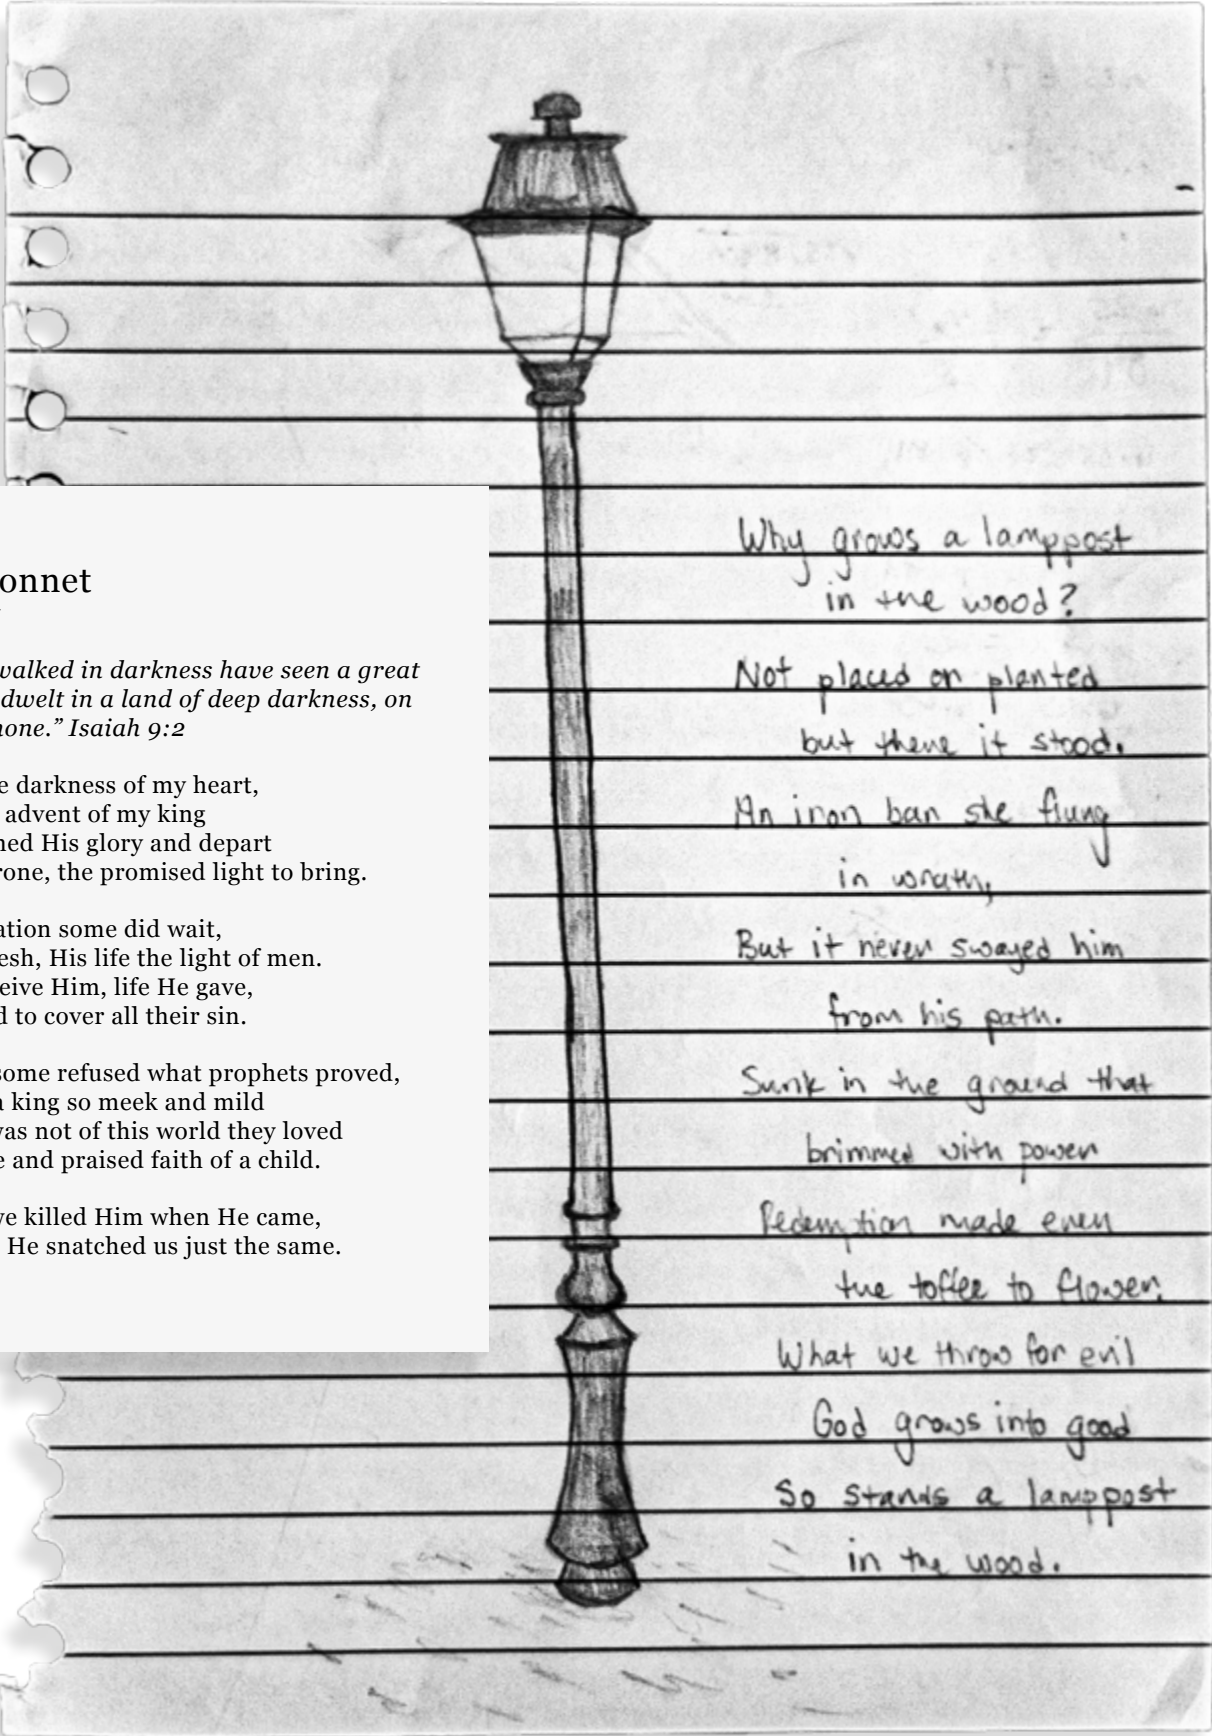 onnet
walked in darkness have seen a great
dwelt in a land of deep darkness, on
hone.” Isaiah 9:2
e darkness of my heart,
advent of my king
ned His glory and depart
rone, the promised light to bring.
ation some did wait,
esh, His life the light of men.
eive Him, life He gave,
d to cover all their sin.
some refused what prophets proved,
a king so meek and mild
was not of this world they loved
e and praised faith of a child.
ve killed Him when He came,
He snatched us just the same.
Why grows a lamppost
in the wood?
Not placed or planted
but there it stood.
An iron bar she flung
in wrath,
But it never swayed him
from his path.
Sunk in the ground that
brimmed with power
Redemption made even
the toffee to flower.
What we throw for evil
God grows into good
So stands a lamppost
in the wood.